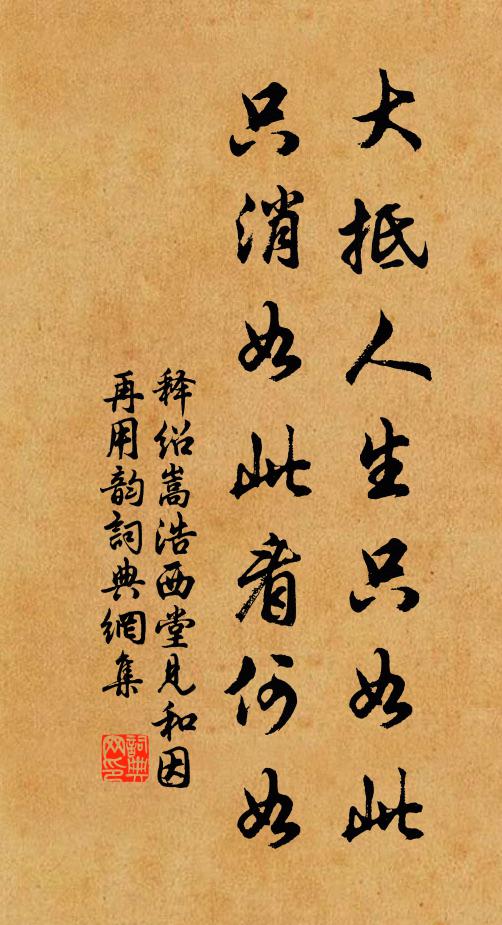 大抵人生只如此
只消如此看何如
释绍嵩浩西堂见和因
再用韵詞典網集
詞典
网印